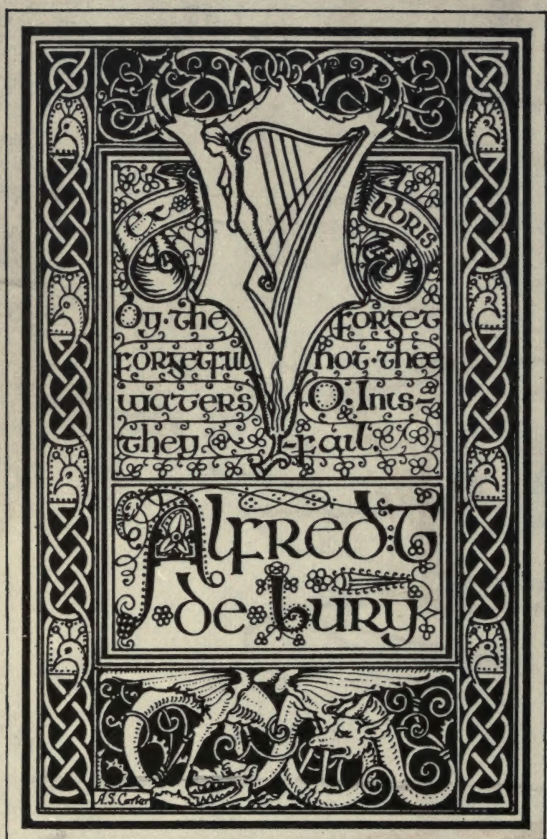 Ex
Libris
By·the
forgetful
waters
they
forget
not·thee
O·Inis-
-fail.
Alfred:T
de Lury
A.S. Carter